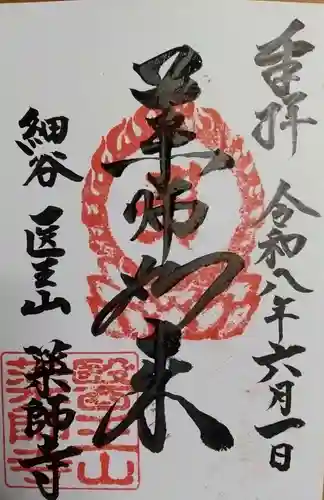 奉拝
令和八年六月一日
薬師如来
細谷 医王山 薬師寺
醫王山
薬師寺